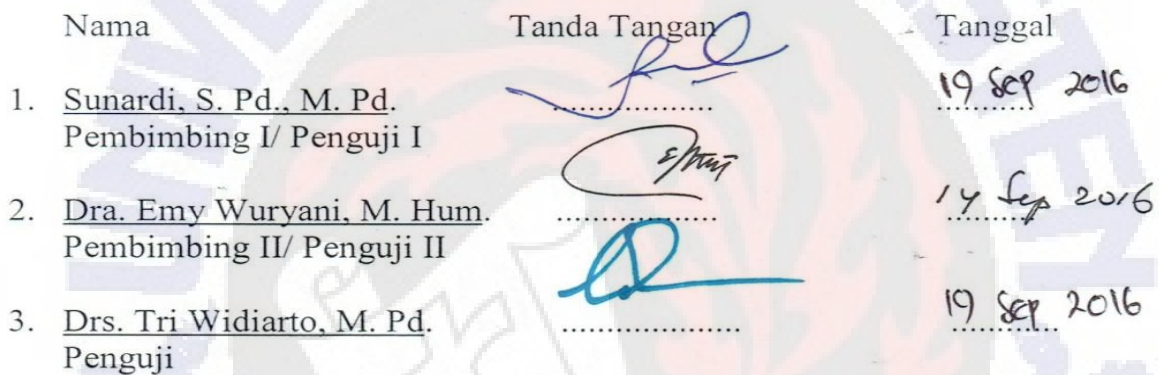 Nama Tanda Tangan Tanggal
1. Sunardi, S. Pd., M. Pd. .................. 19 Sep 2016
Pembimbing I/ Penguji I
2. Dra. Emy Wuryani, M. Hum. .................. 14 Sep 2016
Pembimbing II/ Penguji II
3. Drs. Tri Widiarto, M. Pd. .................... 19 Sep 2016
Penguji